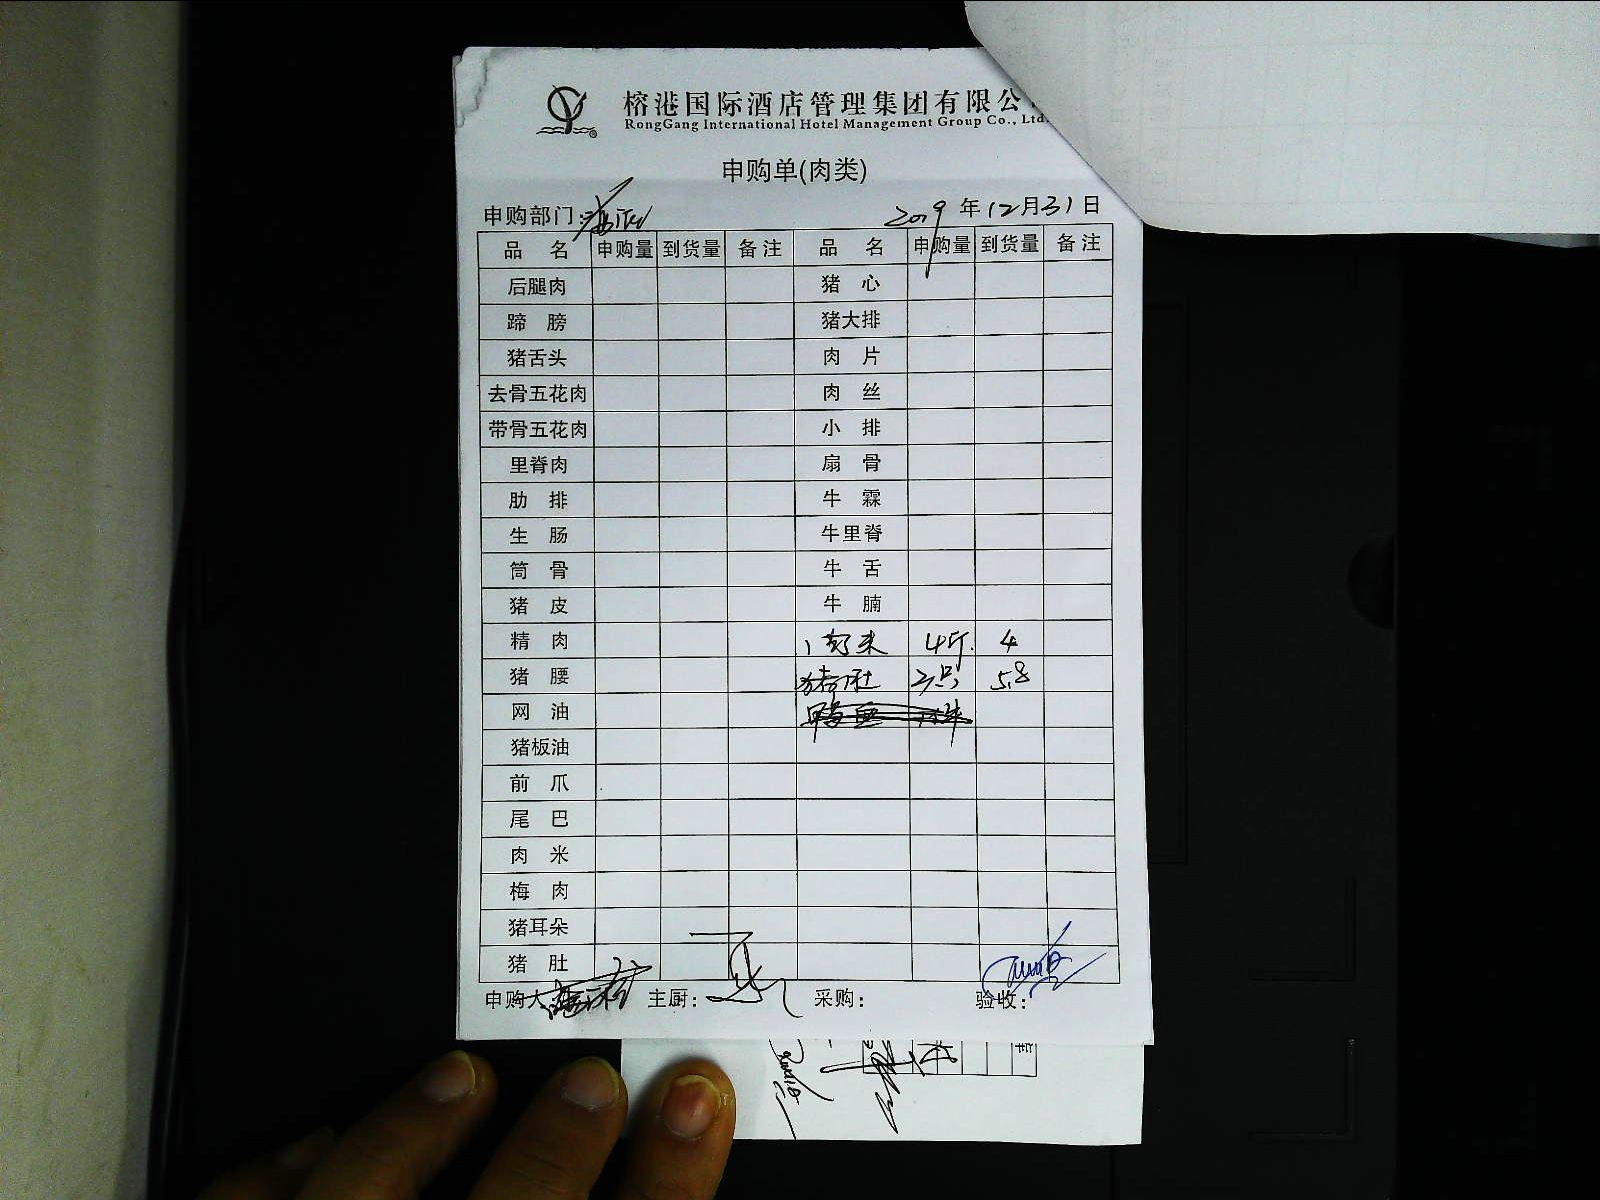 榕港国际酒店管理集团有限公
RongGang International Hotel Management Group Co., Ltd.
申购单(肉类)
申购部门: 2019年12月31日
品 名 申购量 到货量 备注 品 名 申购量 到货量 备注
后腿肉 猪 心
蹄 膀 猪大排
猪舌头 肉 片
去骨五花肉 肉 丝
带骨五花肉 小 排
里脊肉 扇 骨
肋 排 牛 霖
生 肠 牛里脊
筒 骨 牛 舌
猪 皮 牛 腩
精 肉 4斤 4
猪 腰 猪肚 3只 5.8
网 油
猪板油
前 爪
尾 巴
肉 米
梅 肉
猪耳朵
猪 肚
申购人 主厨: 采购: 验收: